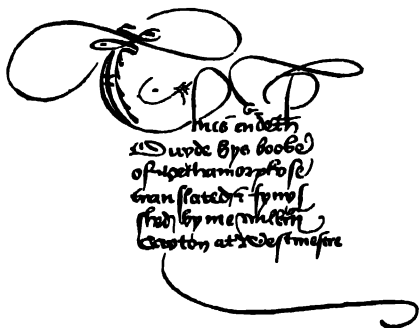 Thus endeth
Ouyde hys booke
of Methamorphose
tranſlated & fynyſ
ſhed by me Willm̄
Caxton at Weſtmeſtre